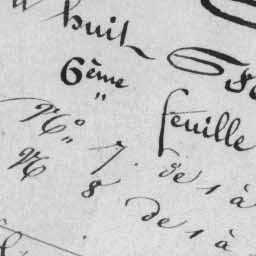 huit
6ème feuille
N° 7. de 1 à
N 8 de 1 à